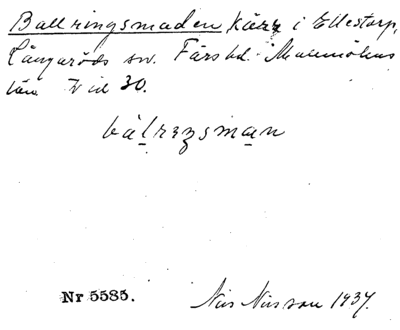 Ballringsmaden Kärr i Ellestorp,
Långaröds sn. Färs hd. Malmöhus
län V id 30.
bálreŋsman
Nr 5585.
Nils Nilsson 1937.